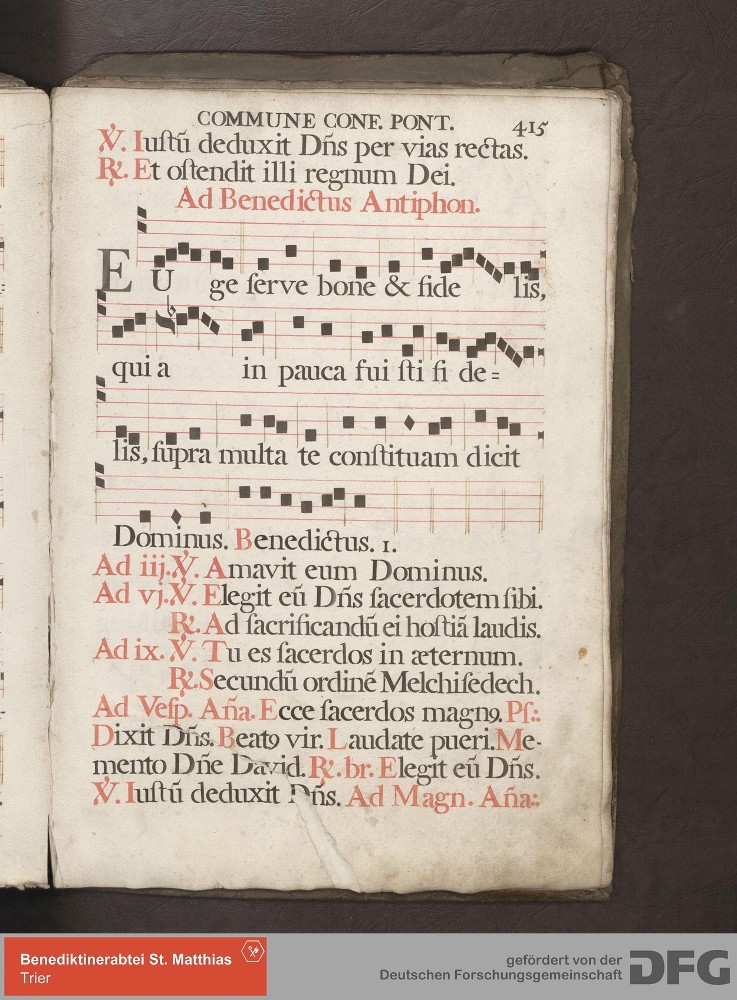 COMMUNE CONF. PONT. 415
℣. Iuſtũ deduxit Dñs per vias rectas.
℟. Et oſtendit illi regnum Dei.
Ad Benedictus Antiphon.
EU ge ſerve bone & fide lis,
qui a in pauca fui ſti fi de=
lis, ſupra multa te conſtituam dicit
Dominus. Benedictus. 1.
Ad iij. ℣. Amavit eum Dominus.
Ad vj. ℣. Elegit eũ Dñs ſacerdotem ſibi.
℟. Ad ſacrificandũ ei hoſtiã laudis.
Ad ix. ℣. Tu es ſacerdos in æternum.
℟. Secundũ ordinẽ Melchiſedech.
Ad Veſp. Aña. Ecce ſacerdos magnꝯ. Pſ:.
Dixit Dñs. Beatꝯ vir. Laudate pueri. Me-
mento Dñe David. ℟. br. Elegit eũ Dñs.
℣. Iuſtũ deduxit Dñs. Ad Magn. Aña:.
Benediktinerabtei St. Matthias
Trier
gefördert von der
Deutschen Forschungsgemeinschaft
DFG